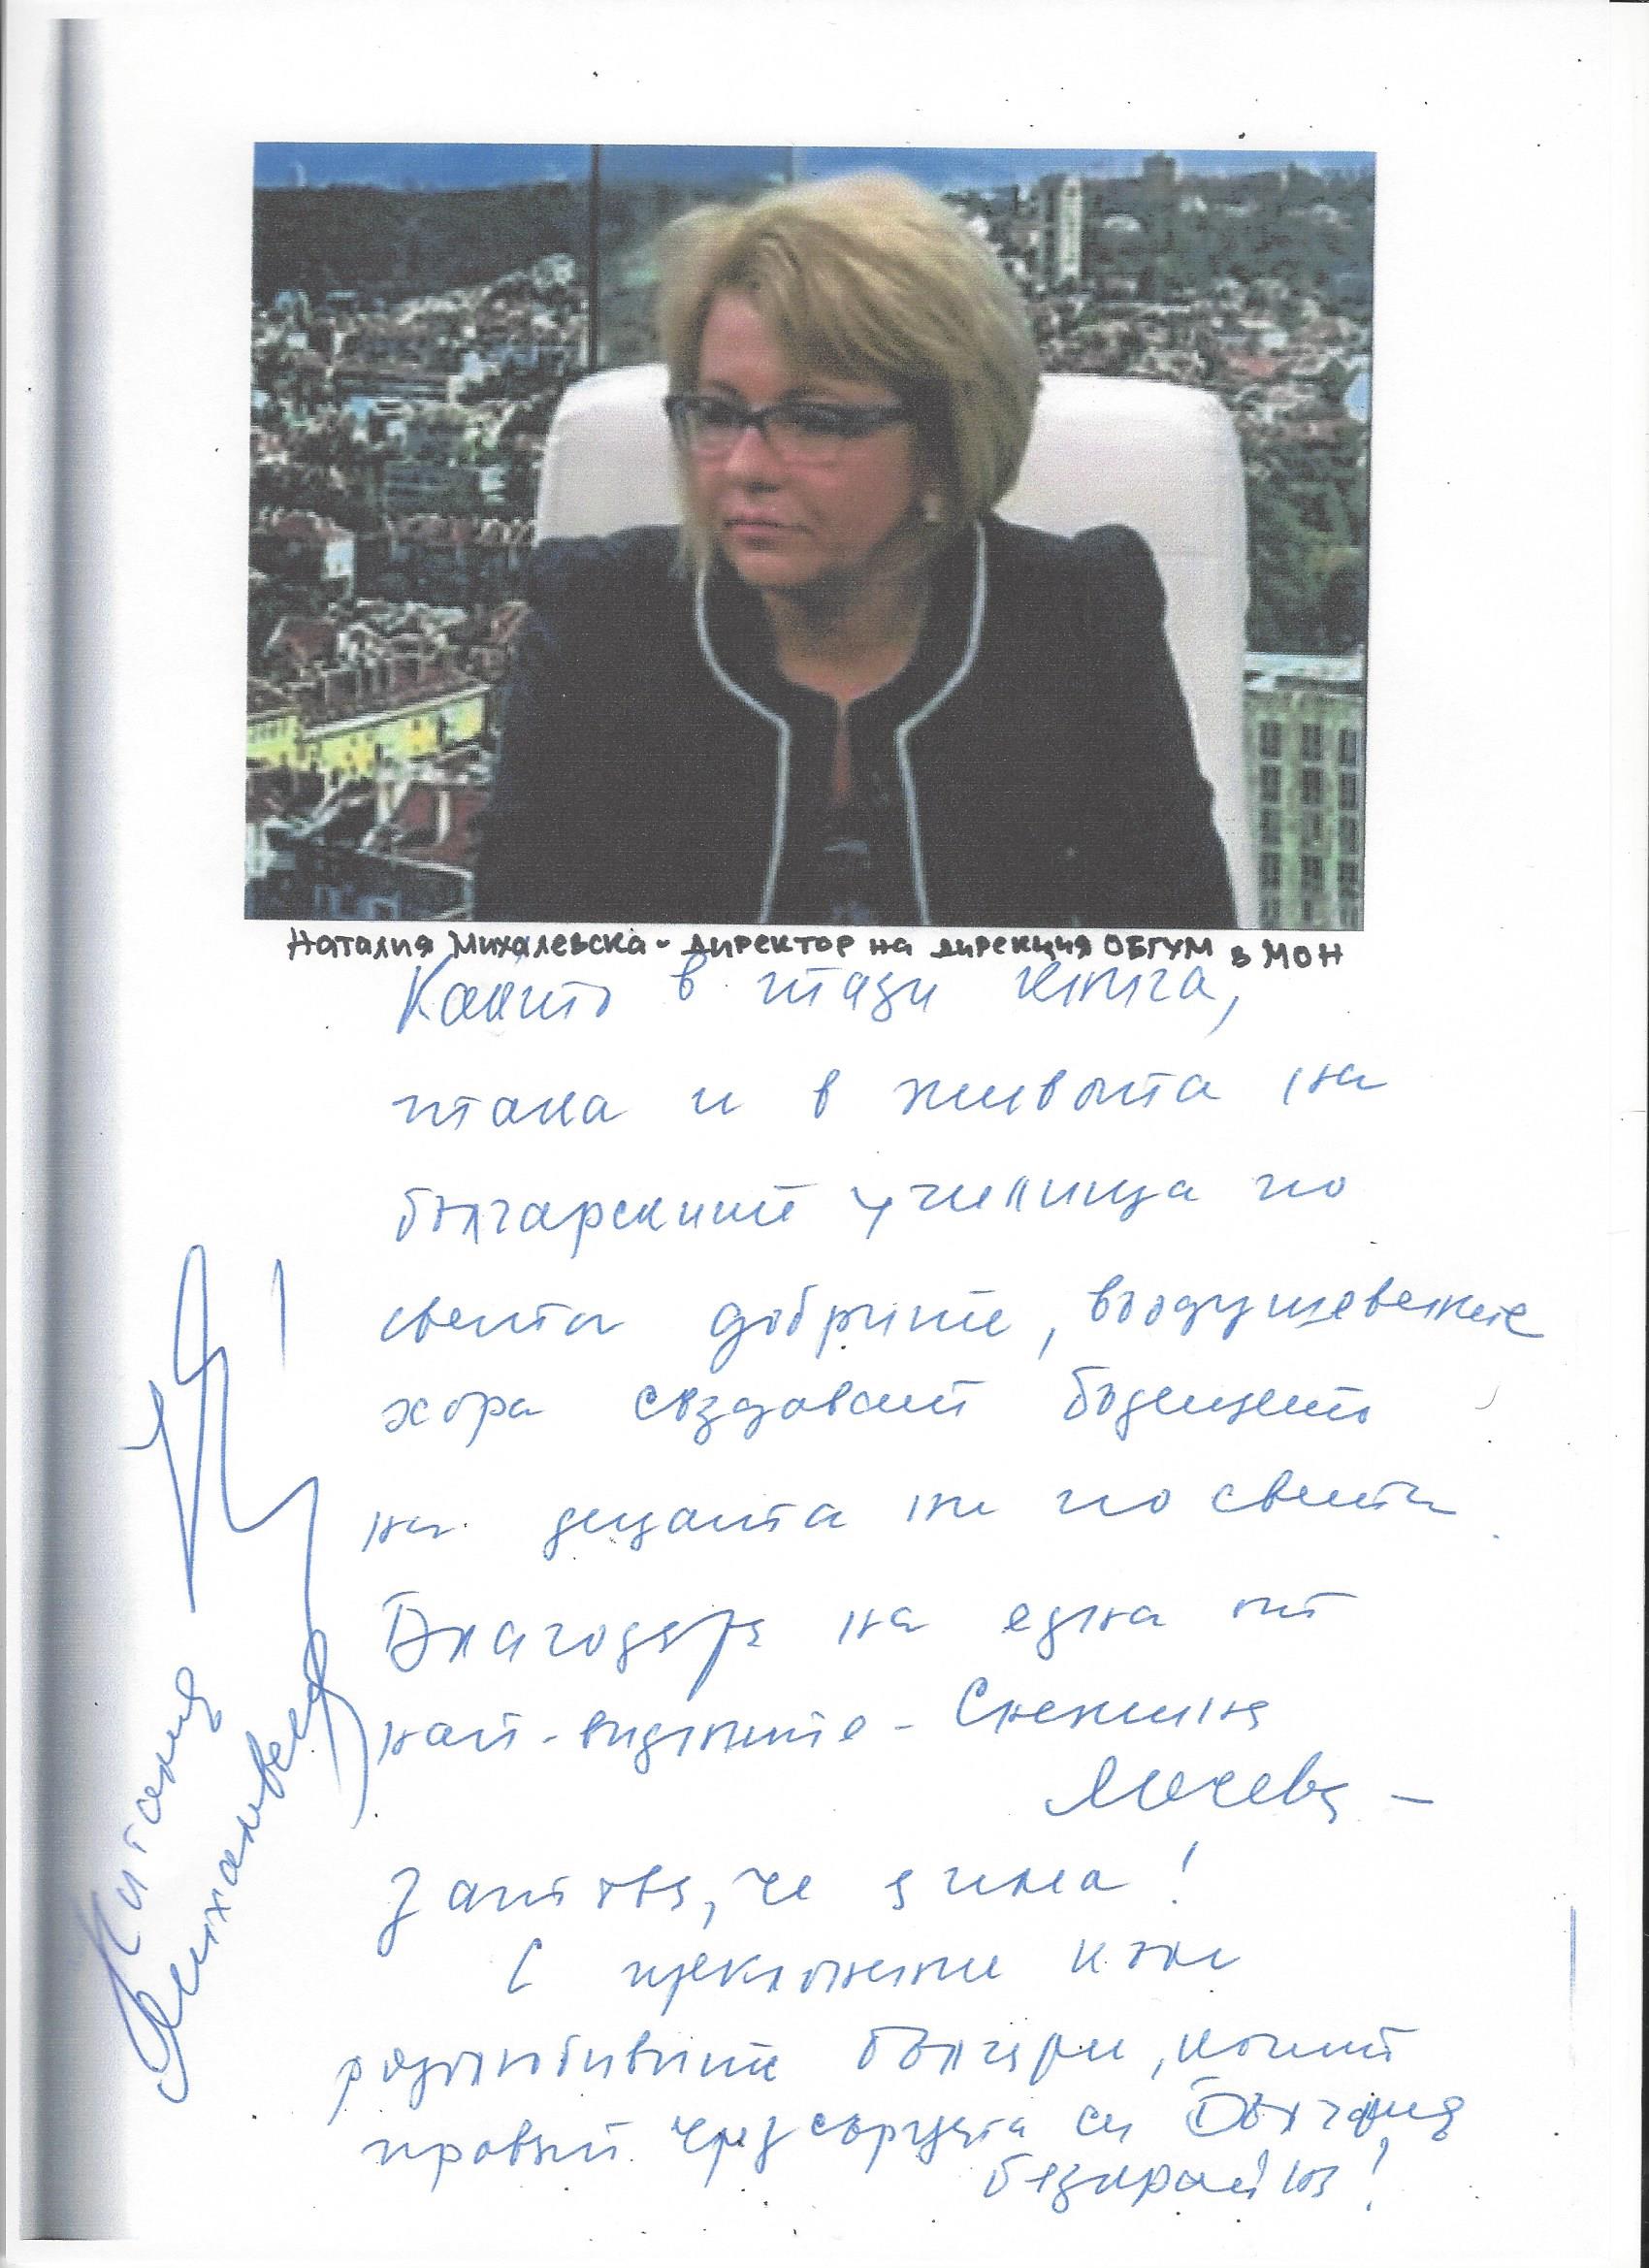 Наталия Михалевска - директор на дирекция ОБГУМ в МОН
Както в тази книга,
така и в живота на
българските училища по
света добрите, въодушевените
хора създават бъдещето
на децата ни по света.
Благодаря на една от
най-видните - Снежина
Мечева -
затова, че я има!
С преклонение към
родолюбивите българи, които
правят чрез сърцата си България
безкрайна!
Наталия
Михалевска